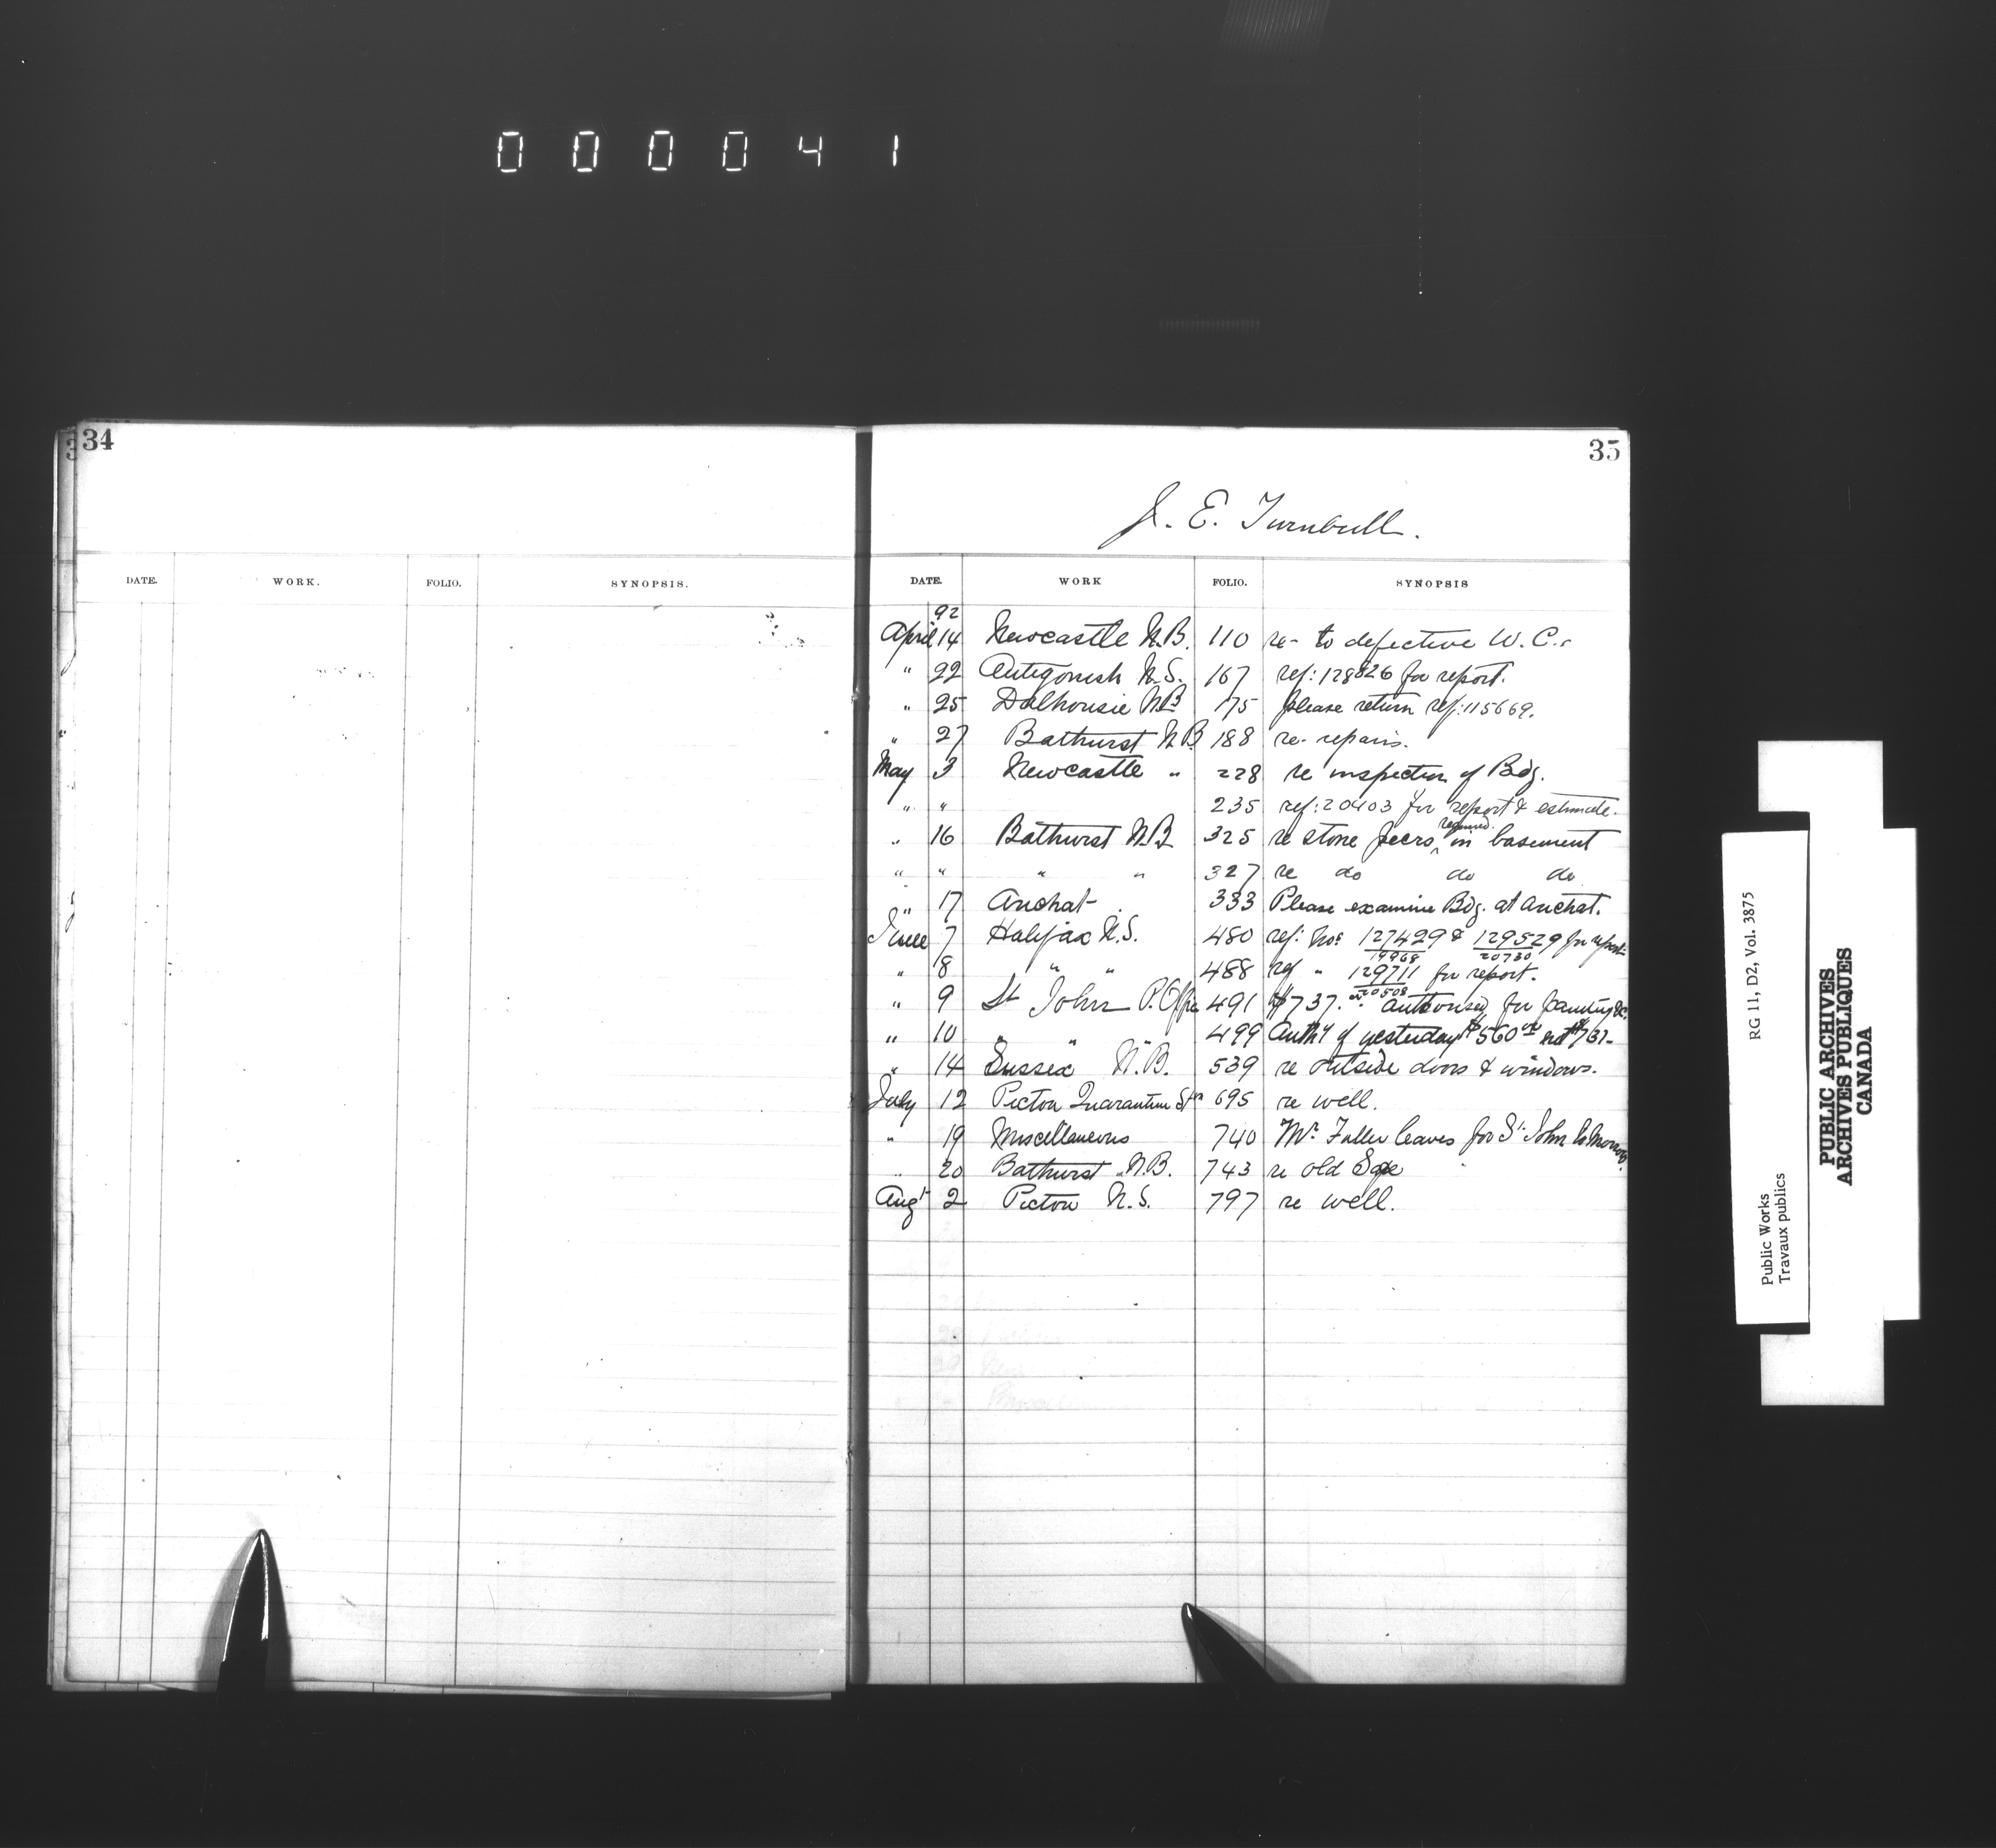 0 0 0 0 4 1
34
DATE. WORK. FOLIO. SYNOPSIS.
35
J. E. Turnbull.
DATE. WORK FOLIO. SYNOPSIS
92
April 14 Newcastle N.B. 110 re- to defective W.C.s
" 22 Antigonish N.S. 167 ref: 128826 for report.
" 25 Dalhousie N.B 175 please return ref: 115669.
" 27 Bathurst N.B 188 re- repairs.
May 3 Newcastle " 228 re inspection of Bdg.
" " 235 ref: 20403 for report & estimate.
required
" 16 Bathurst N.B 325 re stone piers ^ in basement
" " " " 327 re do do do
" 17 Arichat 333 Please examine Bdg. at Arichat.
June 7 Halifax N.S. 480 ref: Nos 127429 & 129529 for report
19968 20730
" 8 " " 488 ref " 129711 for report.
20508
" 9 St John P. Office 491 $737. authorised for painting &c.
" 10 " " " 499 Auth'y of yesterday $560 not $737-
" 14 Sussex N.B. 539 re outside doors & windows.
July 12 Picton Quarantine Stn 695 re well.
" 19 Miscellaneous 740 Mr. Fuller leaves for St. John to morrow.
" 20 Bathurst N.B. 743 re old Safe
Augt 2 Picton N.S. 797 re well.
RG 11, D2, Vol. 3875
Public Works
Travaux publics
PUBLIC ARCHIVES
ARCHIVES PUBLIQUES
CANADA